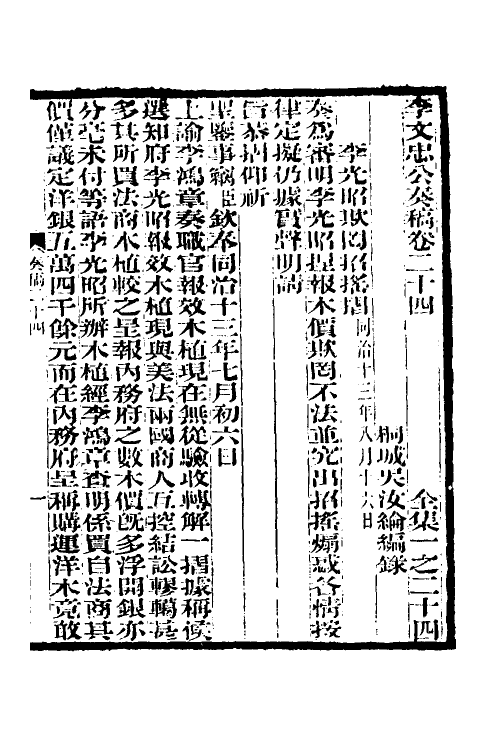 李文忠公奏稿卷二十四　全集一之二十四
桐城吳汝綸編錄
李光昭欺罔招搖摺同治十三年八月十六日
奏爲審明李光昭捏報木價欺罔不法並究出招搖煽惑各情按
律定擬仍據實聲明請
旨恭摺仰祈
聖鑒事竊臣欽奉同治十三年七月初六日
上諭李鴻章奏職官報效木植現在無從驗收轉解一摺據稱候
選知府李光昭報效木植現與美法兩國商人互控結訟轇轕甚
多其所買法商木植較之呈報內務府之數木價旣多浮開銀亦
分毫未付等語李光昭所辦木植經李鴻章查明係買自法商其
價僅議定洋銀五萬四千餘元而在內務府呈稱購運洋木竟敢
奏稿二十四　一